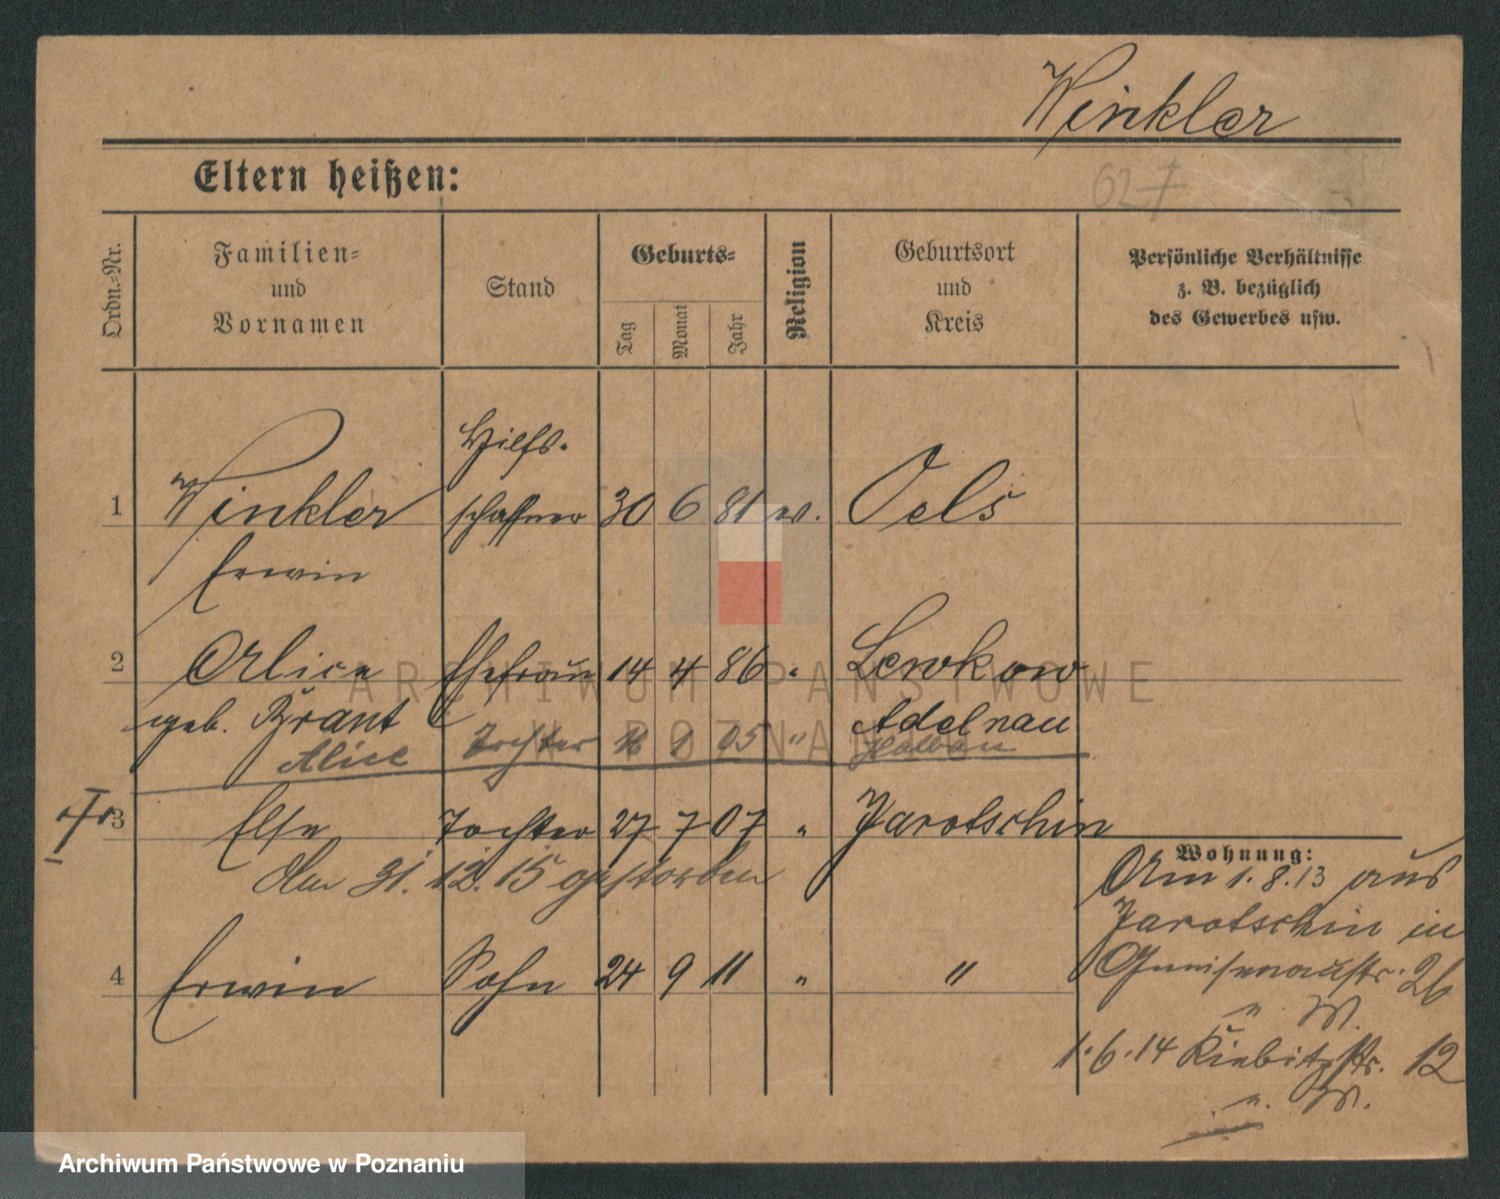 Winkler
Eltern heißen:
627
Ordn.-Nr.
Familien-
und
Vornamen
Stand
Geburts-
Tag
Monat
Jahr
Religion
Geburtsort
und
Kreis
Persönliche Verhältnisse
z. B. bezüglich
des Gewerbes usw.
Hilfs-
1 Winkler schaffner 30 6 81 ev. Oels
Erwin
2 Alice Ehefrau 14 4 86 " Lewkow
geb. Brant Adelnau
Alice Tochter 1 05 "
3 Else Tochter 27 7 07 " Jarotschin
Am 31. 12. 15 gestorben
4 Erwin Sohn 24 9 11 " "
Wohnung:
Am 1. 8. 13 aus
Jarotschin in
Gneisenaustr. 26
1. 6. 14 Kiebitzstr. 12
ARCHIWUM PAŃSTWOWE
W POZNANIU
Archiwum Państwowe w Poznaniu